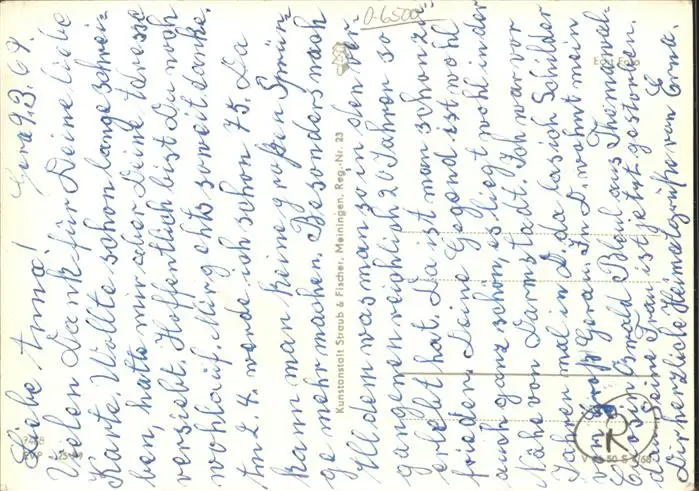 Gera 9.3.69.
Liebe Anna!
Vielen Dank für Deine liebe
Karte. Wollte schon lange schrei-
ben, hatte mir aber Deine Adresse
versiebt. Hoffentlich bist Du noch
wohlauf. Mir gehts soweit danke.
Am 2.4. werde ich schon 75. Da
kann man keine großen Sprün-
ge mehr machen. Besonders nach
Alldem was man so in den ver-
gangenen reichlich 20 Jahren so
erlebt hat. Da ist man schon zu-
frieden. Deine Gegend ist wohl
auch ganz schön, es liegt wohl in der
Nähe von Darmstadt. Ich war vor
Jahren mal in D. da las ich Schilder
von Groß Gerau. In D. wohnt mein
Cousin Oswald Bleul aus Themar
seine Frau ist jetzt gestorben.
Dir herzliche Heimatgrüße von Erna.
0-6500
Echt Foto
Kunstanstalt Straub & Fischer, Meiningen, Reg.-Nr. 23
R